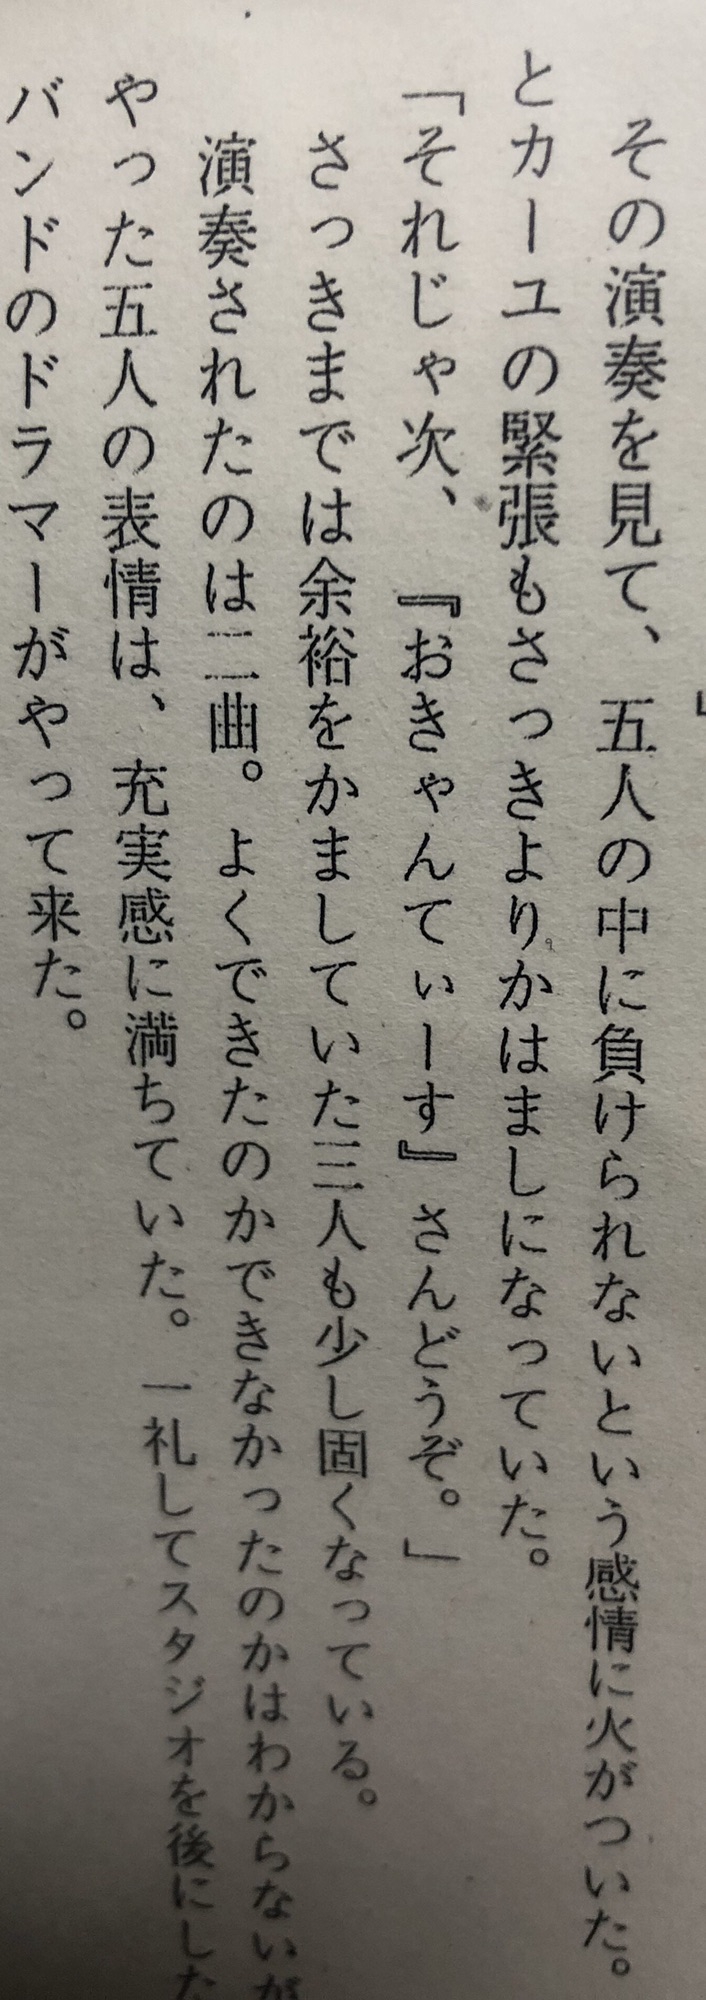 その演奏を見て、五人の中に負けられないという感情に火がついた。
とカーユの緊張もさっきよりかはましになっていた。
「それじゃ次、『おきゃんてぃーす』さんどうぞ。」
さっきまでは余裕をかましていた三人も少し固くなっている。
演奏されたのは二曲。よくできたのかできなかったのかはわからないが
やった五人の表情は、充実感に満ちていた。一礼してスタジオを後にした
バンドのドラマーがやって来た。